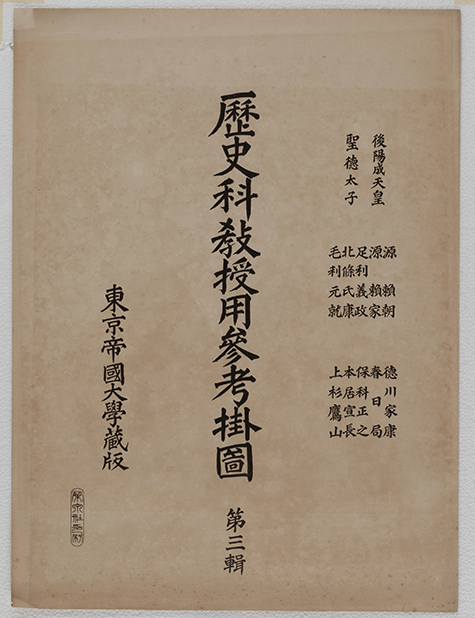 後陽成天皇
聖德太子
源賴朝
源賴家
足利義政
北條氏康
毛利元就
德川家康
春日局
保科正之
本居宣長
上杉鷹山
歷史科敎授用參考掛圖
第三輯
東京帝國大學藏版